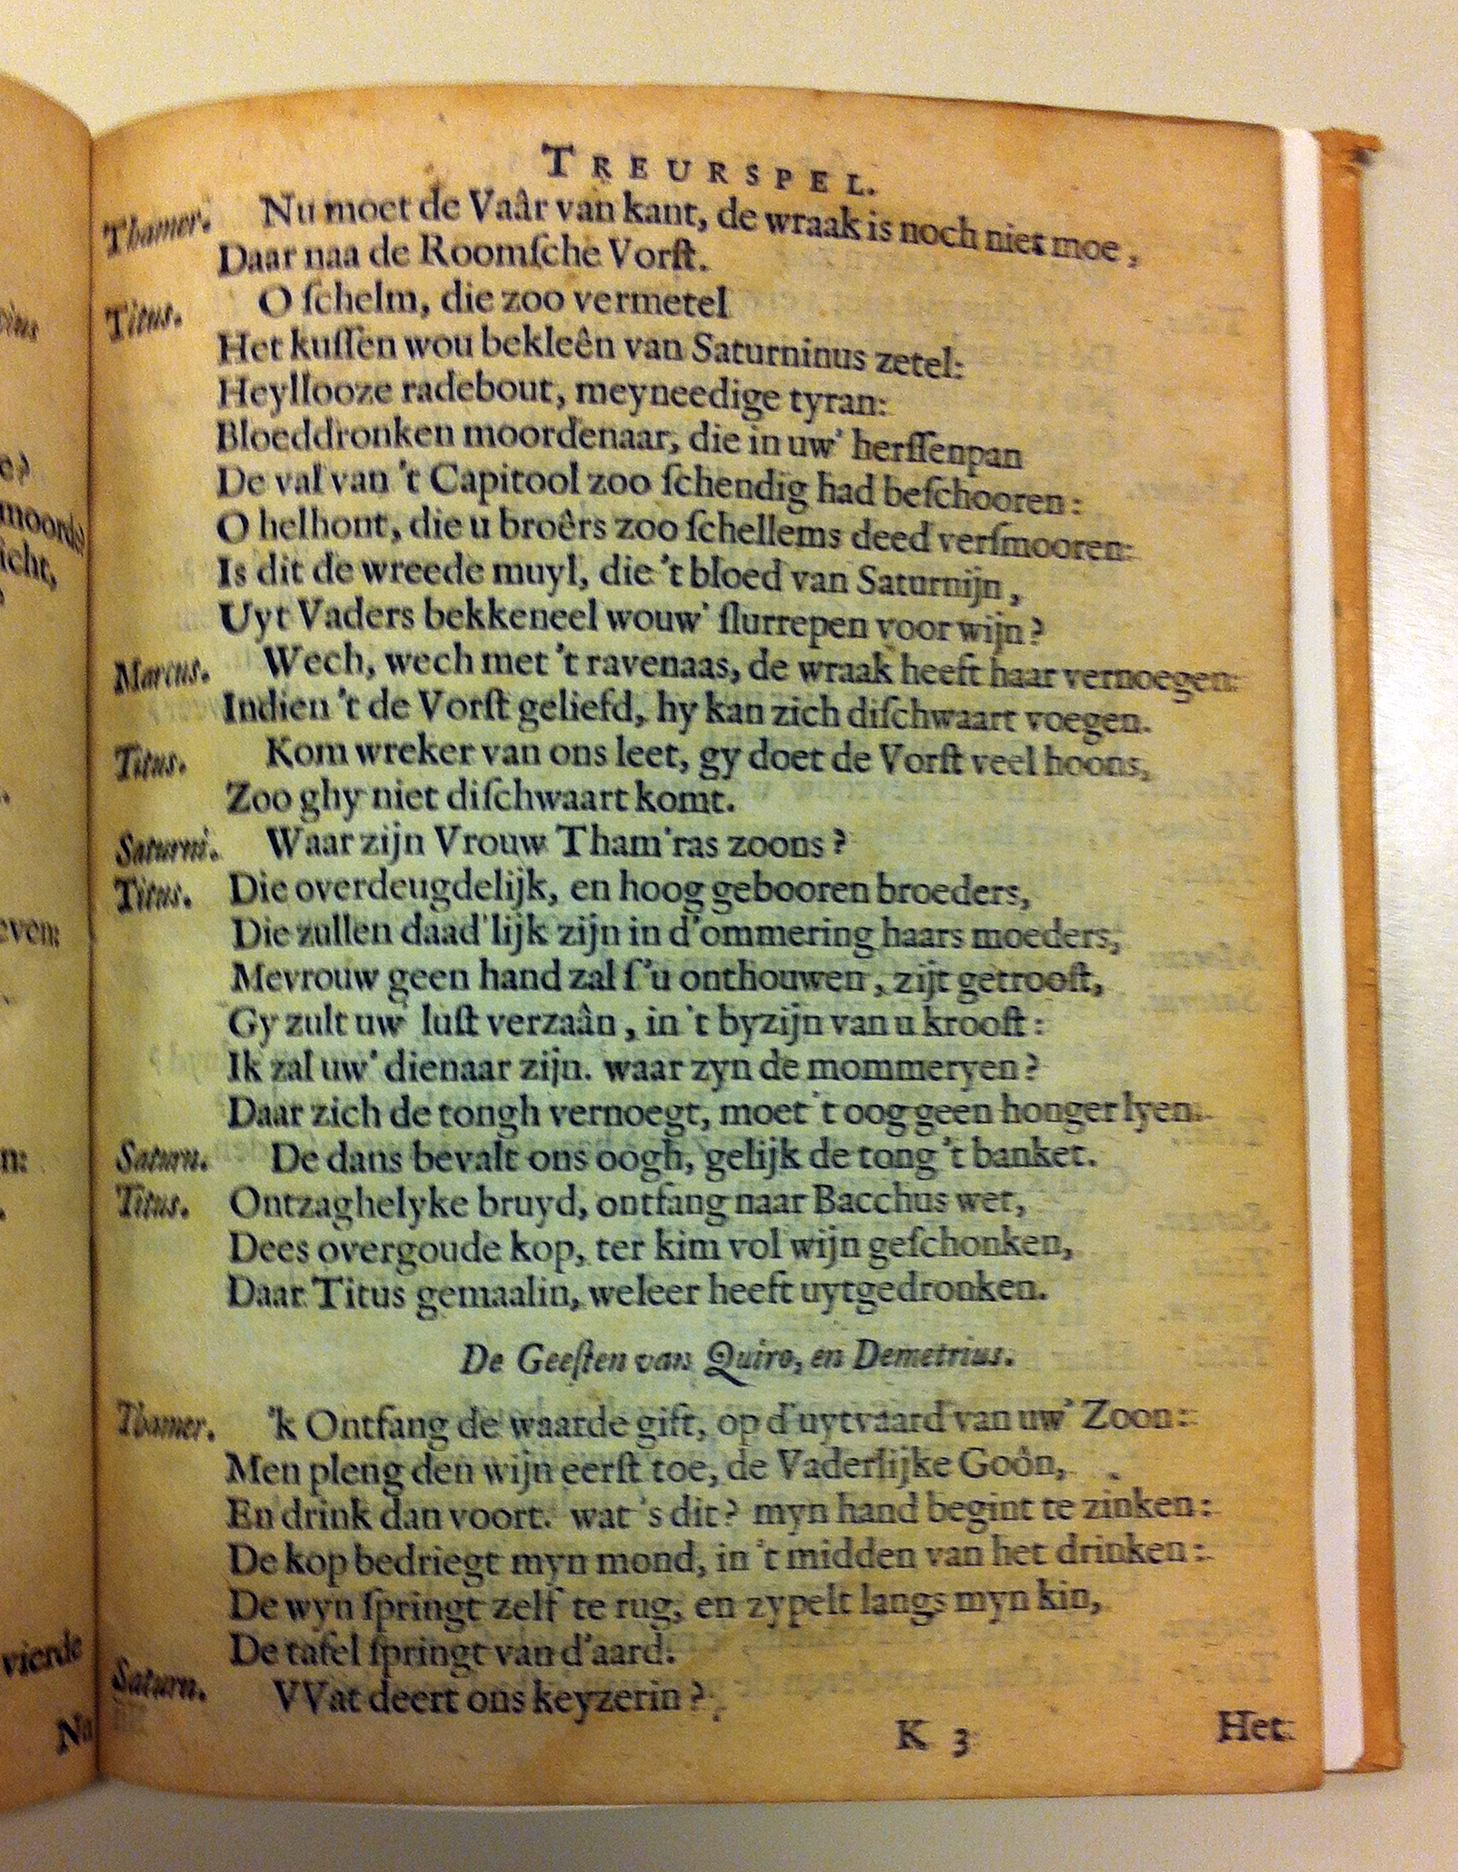 vius
e?
moorde?
icht,
?
even:
n:
vierde
Na
TREURSPEL.
Thamer. Nu moet de Vaâr van kant, de wraak is noch niet moe,
Daar naa de Roomſche Vorſt.
Titus. O ſchelm, die zoo vermetel
Het kuſſen wou bekleên van Saturninus zetel:
Heyllooze radebout, meyneedige tyran:
Bloeddronken moordenaar, die in uw' herſſenpan
De val van 't Capitool zoo ſchendig had beſchooren:
O helhont, die u broêrs zoo ſchellems deed verſmooren:
Is dit de wreede muyl, die 't bloed van Saturnijn,
Uyt Vaders bekkeneel wouw' ſlurrepen voor wijn?
Marcus. Wech, wech met 't ravenaas, de wraak heeft haar vernoegen:
Indien 't de Vorſt geliefd, hy kan zich diſchwaart voegen.
Titus. Kom wreker van ons leet, gy doet de Vorſt veel hoons,
Zoo ghy niet diſchwaart komt.
Saturni. Waar zijn Vrouw Tham'ras zoons?
Titus. Die overdeugdelijk, en hoog gebooren broeders,
Die zullen daad'lijk zijn in d'ommering haars moeders,
Mevrouw geen hand zal ſ'u onthouwen, zijt getrooſt,
Gy zult uw' luſt verzaân, in 't byzijn van u krooſt:
Ik zal uw' dienaar zijn. waar zyn de mommeryen?
Daar zich de tongh vernoegt, moet 't oog geen honger lyen.
Saturn. De dans bevalt ons oogh, gelijk de tong 't banket.
Titus. Ontzaghelyke bruyd, ontfang naar Bacchus wet,
Dees overgoude kop, ter kim vol wijn geſchonken,
Daar Titus gemaalin, weleer heeft uytgedronken.
De Geeſten van Quiro, en Demetrius.
Thamer. 'k Ontfang de waarde gift, op d'uytvaard van uw' Zoon:
Men pleng den wijn eerſt toe, de Vaderlijke Goôn,
En drink dan voort. wat 's dit? myn hand begint te zinken:
De kop bedriegt myn mond, in 't midden van het drinken:
De wyn ſpringt zelf te rug, en zypelt langs myn kin,
De tafel ſpringt van d'aard.
Saturn. VVat deert ons keyzerin?
K 3 Het